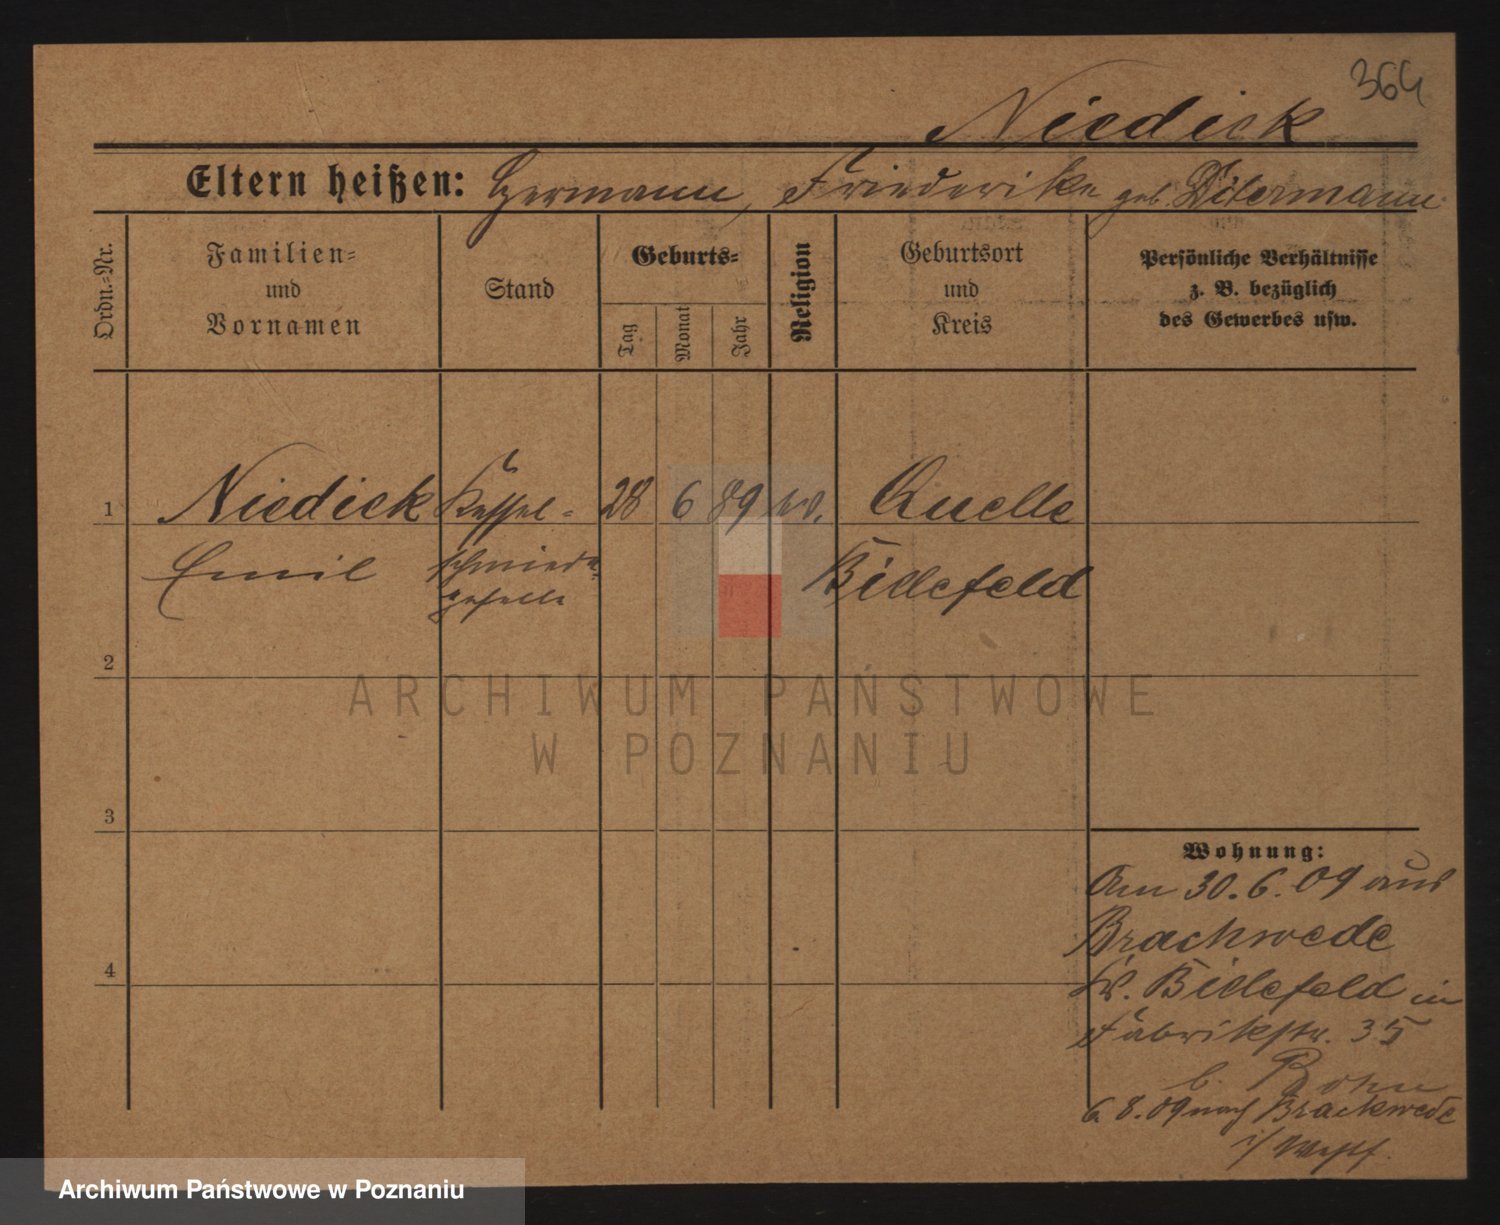 364
Niedick
Eltern heißen: Hermann, Friederike geb. Ditermann
Ordn.-Nr.
Familien-
und
Vornamen
Stand
Geburts-
Tag
Monat
Jahr
Religion
Geburtsort
und
Kreis
Persönliche Verhältnisse
z. B. bezüglich
des Gewerbes usw.
1 Niedick Kessel- 28 6 89 Quelle
Emil schmiede- Bielefeld
geselle
2
3
4
Wohnung:
Am 30.6.09 aus
Brackwede
Kr. Bielefeld in
Fabrikstr. 35
b. Rohn
6.8.09 nach Brackwede
i/ Westf.
ARCHIWUM PAŃSTWOWE
W POZNANIU
Archiwum Państwowe w Poznaniu